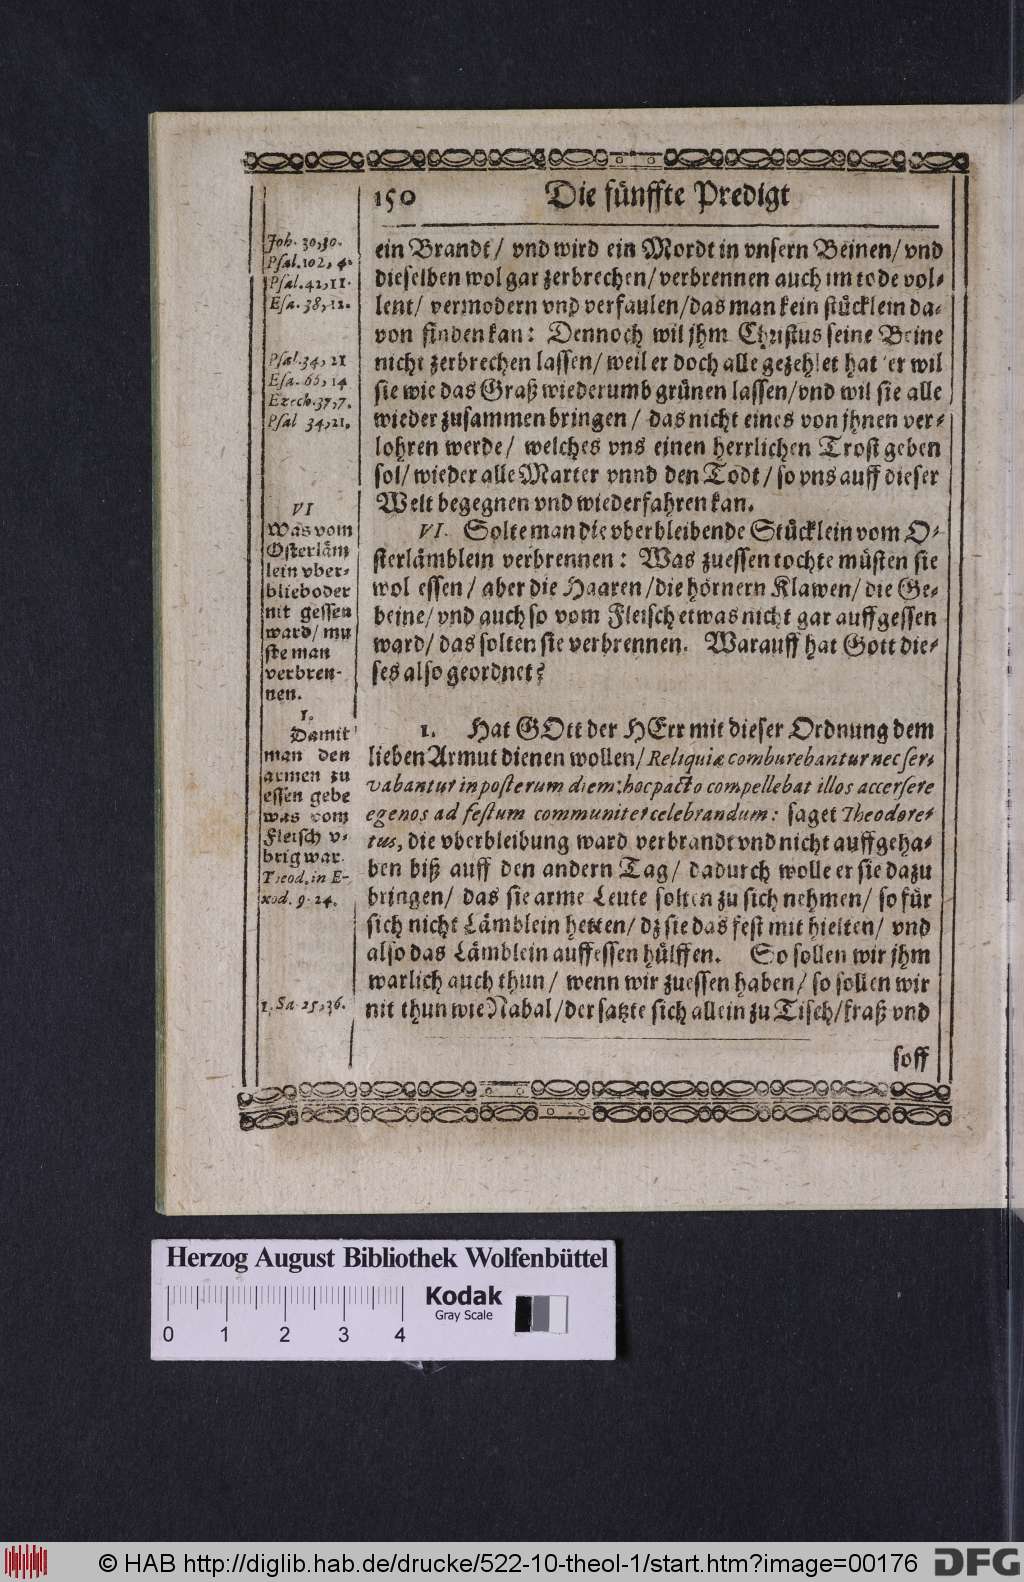 150 Die fünffte Predigt
Job. 30,30.
Psal. 102, 4.
Psal. 42, 11.
Esa. 38, 12.
Psal. 34, 21
Esa. 66, 14
Ezech. 37, 7.
Psal 34, 21.
VI
Was vom
Osterläm
lein vber-
blieb oder
nit gessen
ward/ mu
ste man
verbren-
nen.
1.
Damit
man den
armen zu
essen gebe
was vom
Fleisch v-
brig war.
Theod. in E-
xod. q. 24.
1. Sa 25, 36.
ein Brandt/ vnd wird ein Mordt in vnsern Beinen/ vnd
dieselben wol gar zerbrechen/ verbrennen auch im tode vol-
lent/ vermodern vnd verfaulen/ das man kein stücklein da-
von finden kan: Dennoch wil jhm Christus seine Beine
nicht zerbrechen lassen/ weil er doch alle gezehlet hat er wil
sie wie das Graß wiederumb grünen lassen/ vnd wil sie alle
wieder zusammen bringen/ das nicht eines von jhnen ver-
lohren werde/ welches vns einen herrlichen Trost geben
sol/ wieder alle Marter vnnd den Todt/ so vns auff dieser
Welt begegnen vnd wiederfahren kan.
VI. Solte man die vberbleibende Stücklein vom O-
sterlämblein verbrennen: Was zuessen tochte müsten sie
wol essen/ aber die Haaren/ die hörnern Klawen/ die Ge-
beine/ vnd auch so vom Fleisch etwas nicht gar auffgessen
ward/ das solten sie verbrennen. Warauff hat Gott die-
ses also geordnet?
1. Hat GOtt der HErr mit dieser Ordnung dem
lieben Armut dienen wollen/ Reliquiæ comburebantur nec ser-
vabantur in posterum diem: hoc pacto compellebat illos accersere
egenos ad festum communiter celebrandum: saget Theodore-
tus, die vberbleibung ward verbrandt vnd nicht auffgeha-
ben biß auff den andern Tag/ dadurch wolle er sie dazu
bringen/ das sie arme Leute solten zu sich nehmen/ so für
sich nicht Lämblein hetten/ dz sie das fest mit hielten/ vnd
also das Lämblein auffessen hülffen. So sollen wir jhm
warlich auch thun/ wenn wir zuessen haben/ so sollen wir
nit thun wie Nabal/ der satzte sich allein zu Tisch/ fraß vnd
soff
Herzog August Bibliothek Wolfenbüttel
Kodak
Gray Scale
0 1 2 3 4
© HAB http://diglib.hab.de/drucke/522-10-theol-1/start.htm?image=00176 DFG